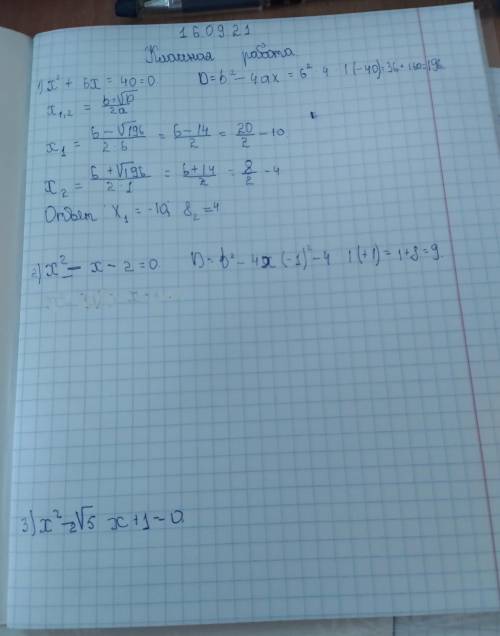 16.09.21
Классная работа
1) x² + 6x = 40 = 0 D = b² - 4ax = 6² 4 1(-40) = 36 + 160 = 196
x₁,₂ = b+√D / 2a
x₁ = 6 - √196 / 2·6 = 6 - 14 / 2 = 20 / 2 - 10
x₂ = 6 + √196 / 2·1 = 6 + 14 / 2 = 8 / 2 - 4
Ответ X₁ = -10 8₂ = 4
2) x² - x - 2 = 0 D = b² - 4x (-1)² - 4 1(+1) = 1 + 8 = 9
3) x² - 2√5 x + 1 = 0